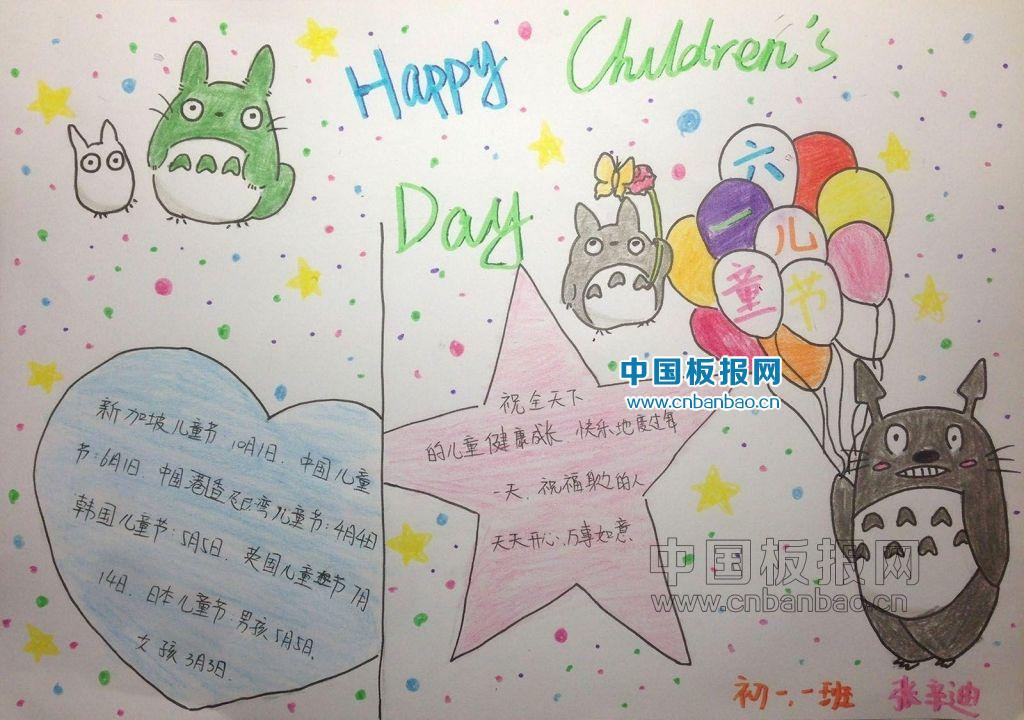 Happy Children's
Day
六
一 儿
童 节
中国板报网
www.cnbanbao.cn
新加坡儿童节 10月1日. 中国儿童
节:6月1日 中国港
湾儿童节:4月4日
韩国儿童节:5月5日. 英国儿童节7月
14日. 日本儿童节:男孩5月5日.
女孩3月3日.
祝全天下
的儿童健康成长 快乐地度过每
一天. 祝福 的人
天天开心.万事如意.
中国板报网
www.cnbanbao.cn
初一.一班 张辛迪